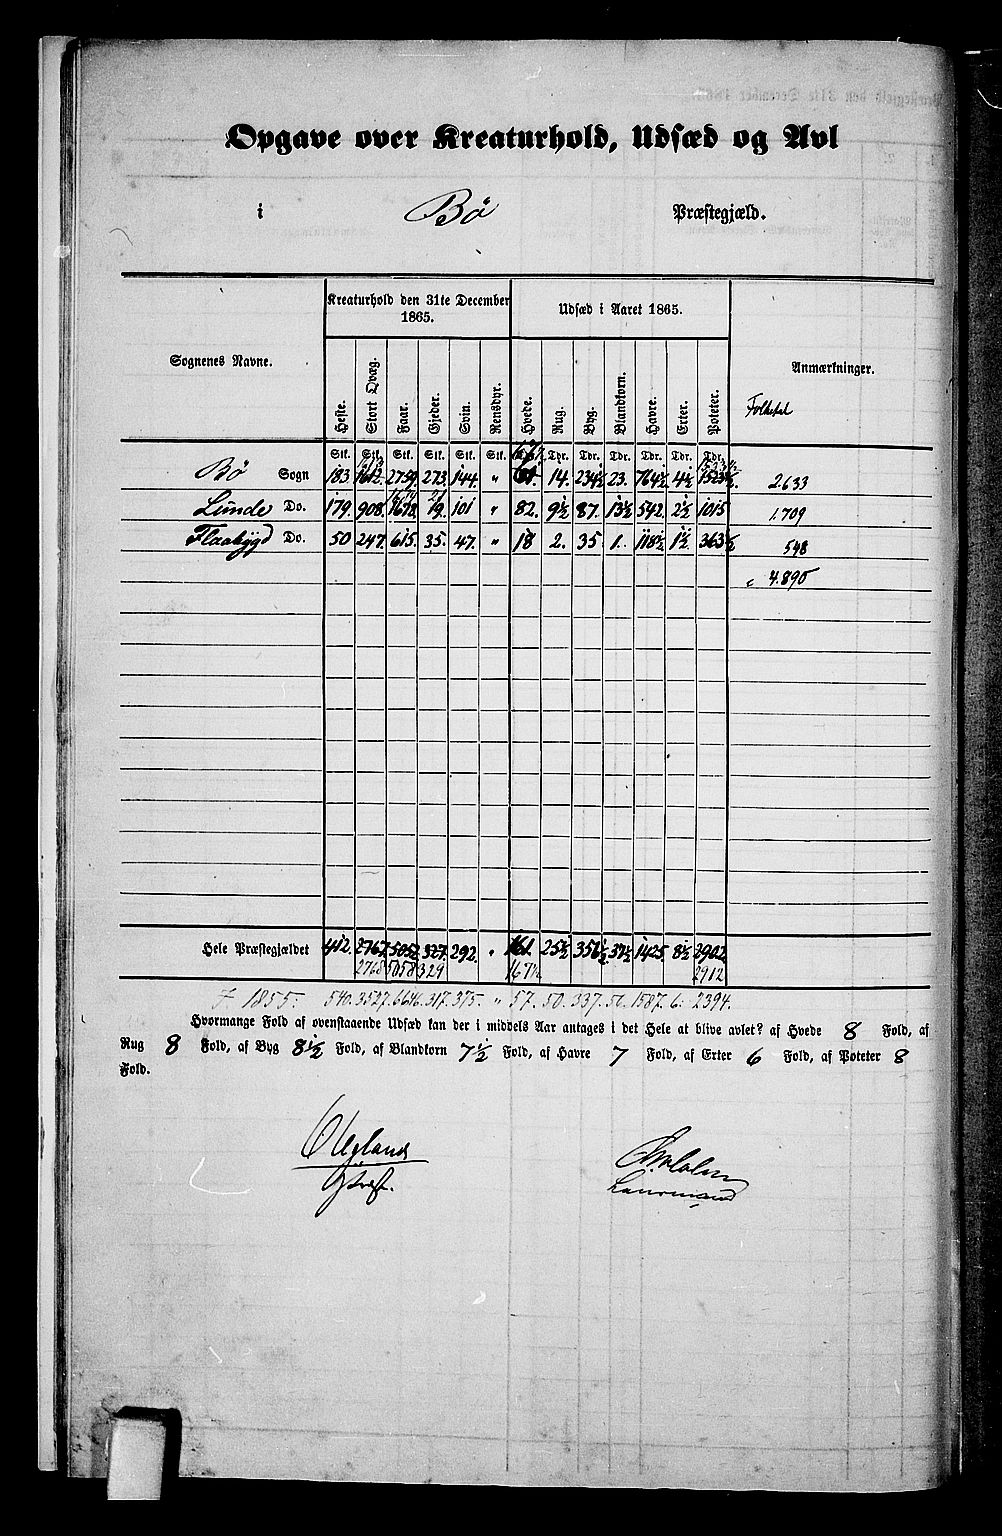 Opgave over Kreaturhold, Udsæd og Avl
i Bø Præstegjæld.
Sognenes Navne. Kreaturhold den 31te December 1865. Udsæd i Aaret 1865. Anmærkninger.
Heste. Stort Qvæg. Faar. Gjeder. Svin. Rensdyr. Hvede. Rug. Byg. Blandkorn. Havre. Erter. Poteter. Folketal
Stk. Stk. Stk. Stk. Stk. Stk. Tdr. Tdr. Tdr. Tdr. Tdr. Tdr.
Bø Sogn 183 2759. 273. 144. " 14. 234½ 23. 764½ 4½ 2.633
Lunde Do. 179. 908. 101 " 82. 9½ 87. 13½ 542. 2½ 1015 1.709
Flaabygd Do. 50 247. 615. 35. 47. " 18 2. 35. 1. 118½ 1½ 363½ 548
4.890
Hele Præstegjældet 412. 2767. 5052 327. 292. " 161. 25½ 356½ 37½ 1425. 8½ 2902
2768 5058 329 167½ 2912
I 1855: 540. 3527. 6646. 317. 375. " 57. 50. 337. 50. 1587. 6. 2394.
Hvormange Fold af ovenstaaende Udsæd kan der i middels Aar antages i det Hele at blive avlet? af Hvede 8 Fold, af
Rug 8 Fold, af Byg 8½ Fold, af Blandkorn 7½ Fold, af Havre 7 Fold, af Erter 6 Fold, af Poteter 8
Fold.
Lensmand